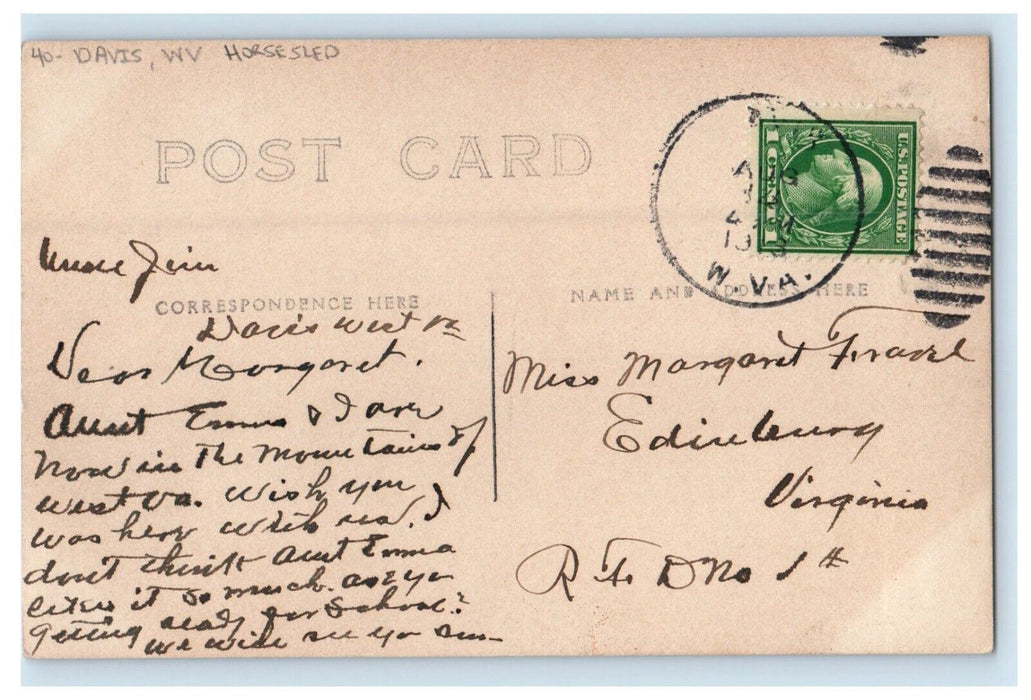 40- DAVIS, WV HORSESLED
POST CARD
AUG
4 PM
W. VA.
1 CENT 1
U.S. POSTAGE
Uncle Jim
CORRESPONDENCE HERE
NAME AND ADDRESS HERE
Davis West Va
Dear Margaret.
Aunt Emma & I are
now in the mountains of
West Va. Wish you
was here with us. I
dont think Aunt Emma
likes it so much. are yu
getting ready for school?
we will see yo
Miss Margaret Fravel
Edinburg
Virginia
R F D No 1